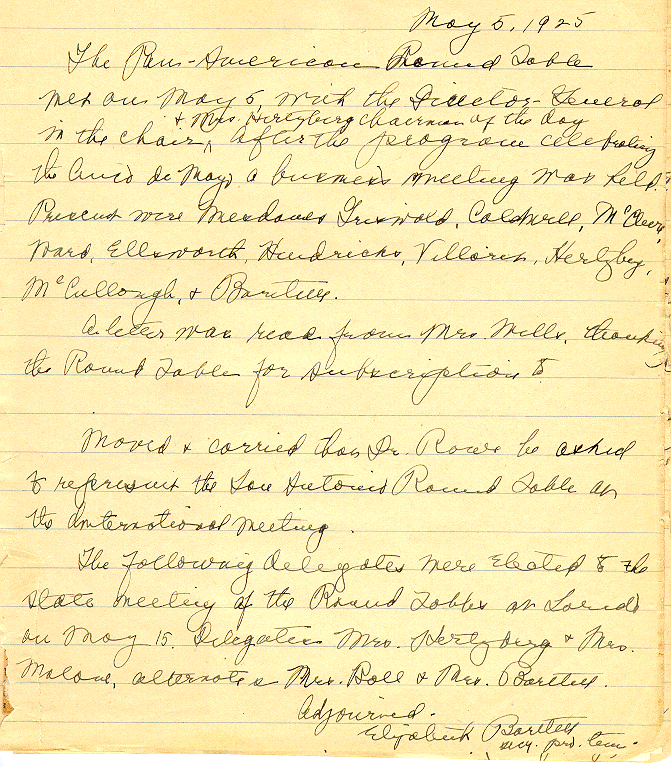 May 5, 1925
The Pan-American Round Table
met on May 5, with the Director-General
& Mrs. Hertzberg chairman of the day
in the chair, after the program celebrating
the Cinco de Mayo a business meeting was held.
Present were Mesdames Griswold, Coldwell, McCleary,
Ward, Ellsworth, Hendricks, Villoris, Hertzbg,
McCullough, & Bartlett.
A letter was read from Mrs. Wells, thanking
the Round Table for subscription to
Moved & carried that Dr. Rowe be asked
to represent the San Antonio Round Table at
the international meeting.
The following delegates were elected to the
state meeting of the Round Tables at Laredo
on May 15. Delegates Mrs. Hertzberg & Mrs.
Malone, alternates Mrs. Boll & Mrs. Bartlett.
Adjourned.
Elizabeth Bartlett
secy. pro. tem.